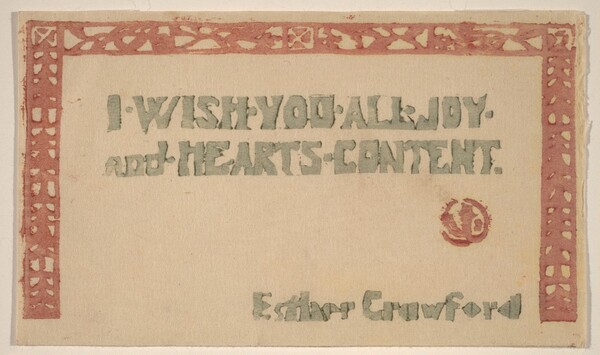 I·WISH·YOU·ALL·JOY·
and·HEARTS·CONTENT.
Esther Crawford